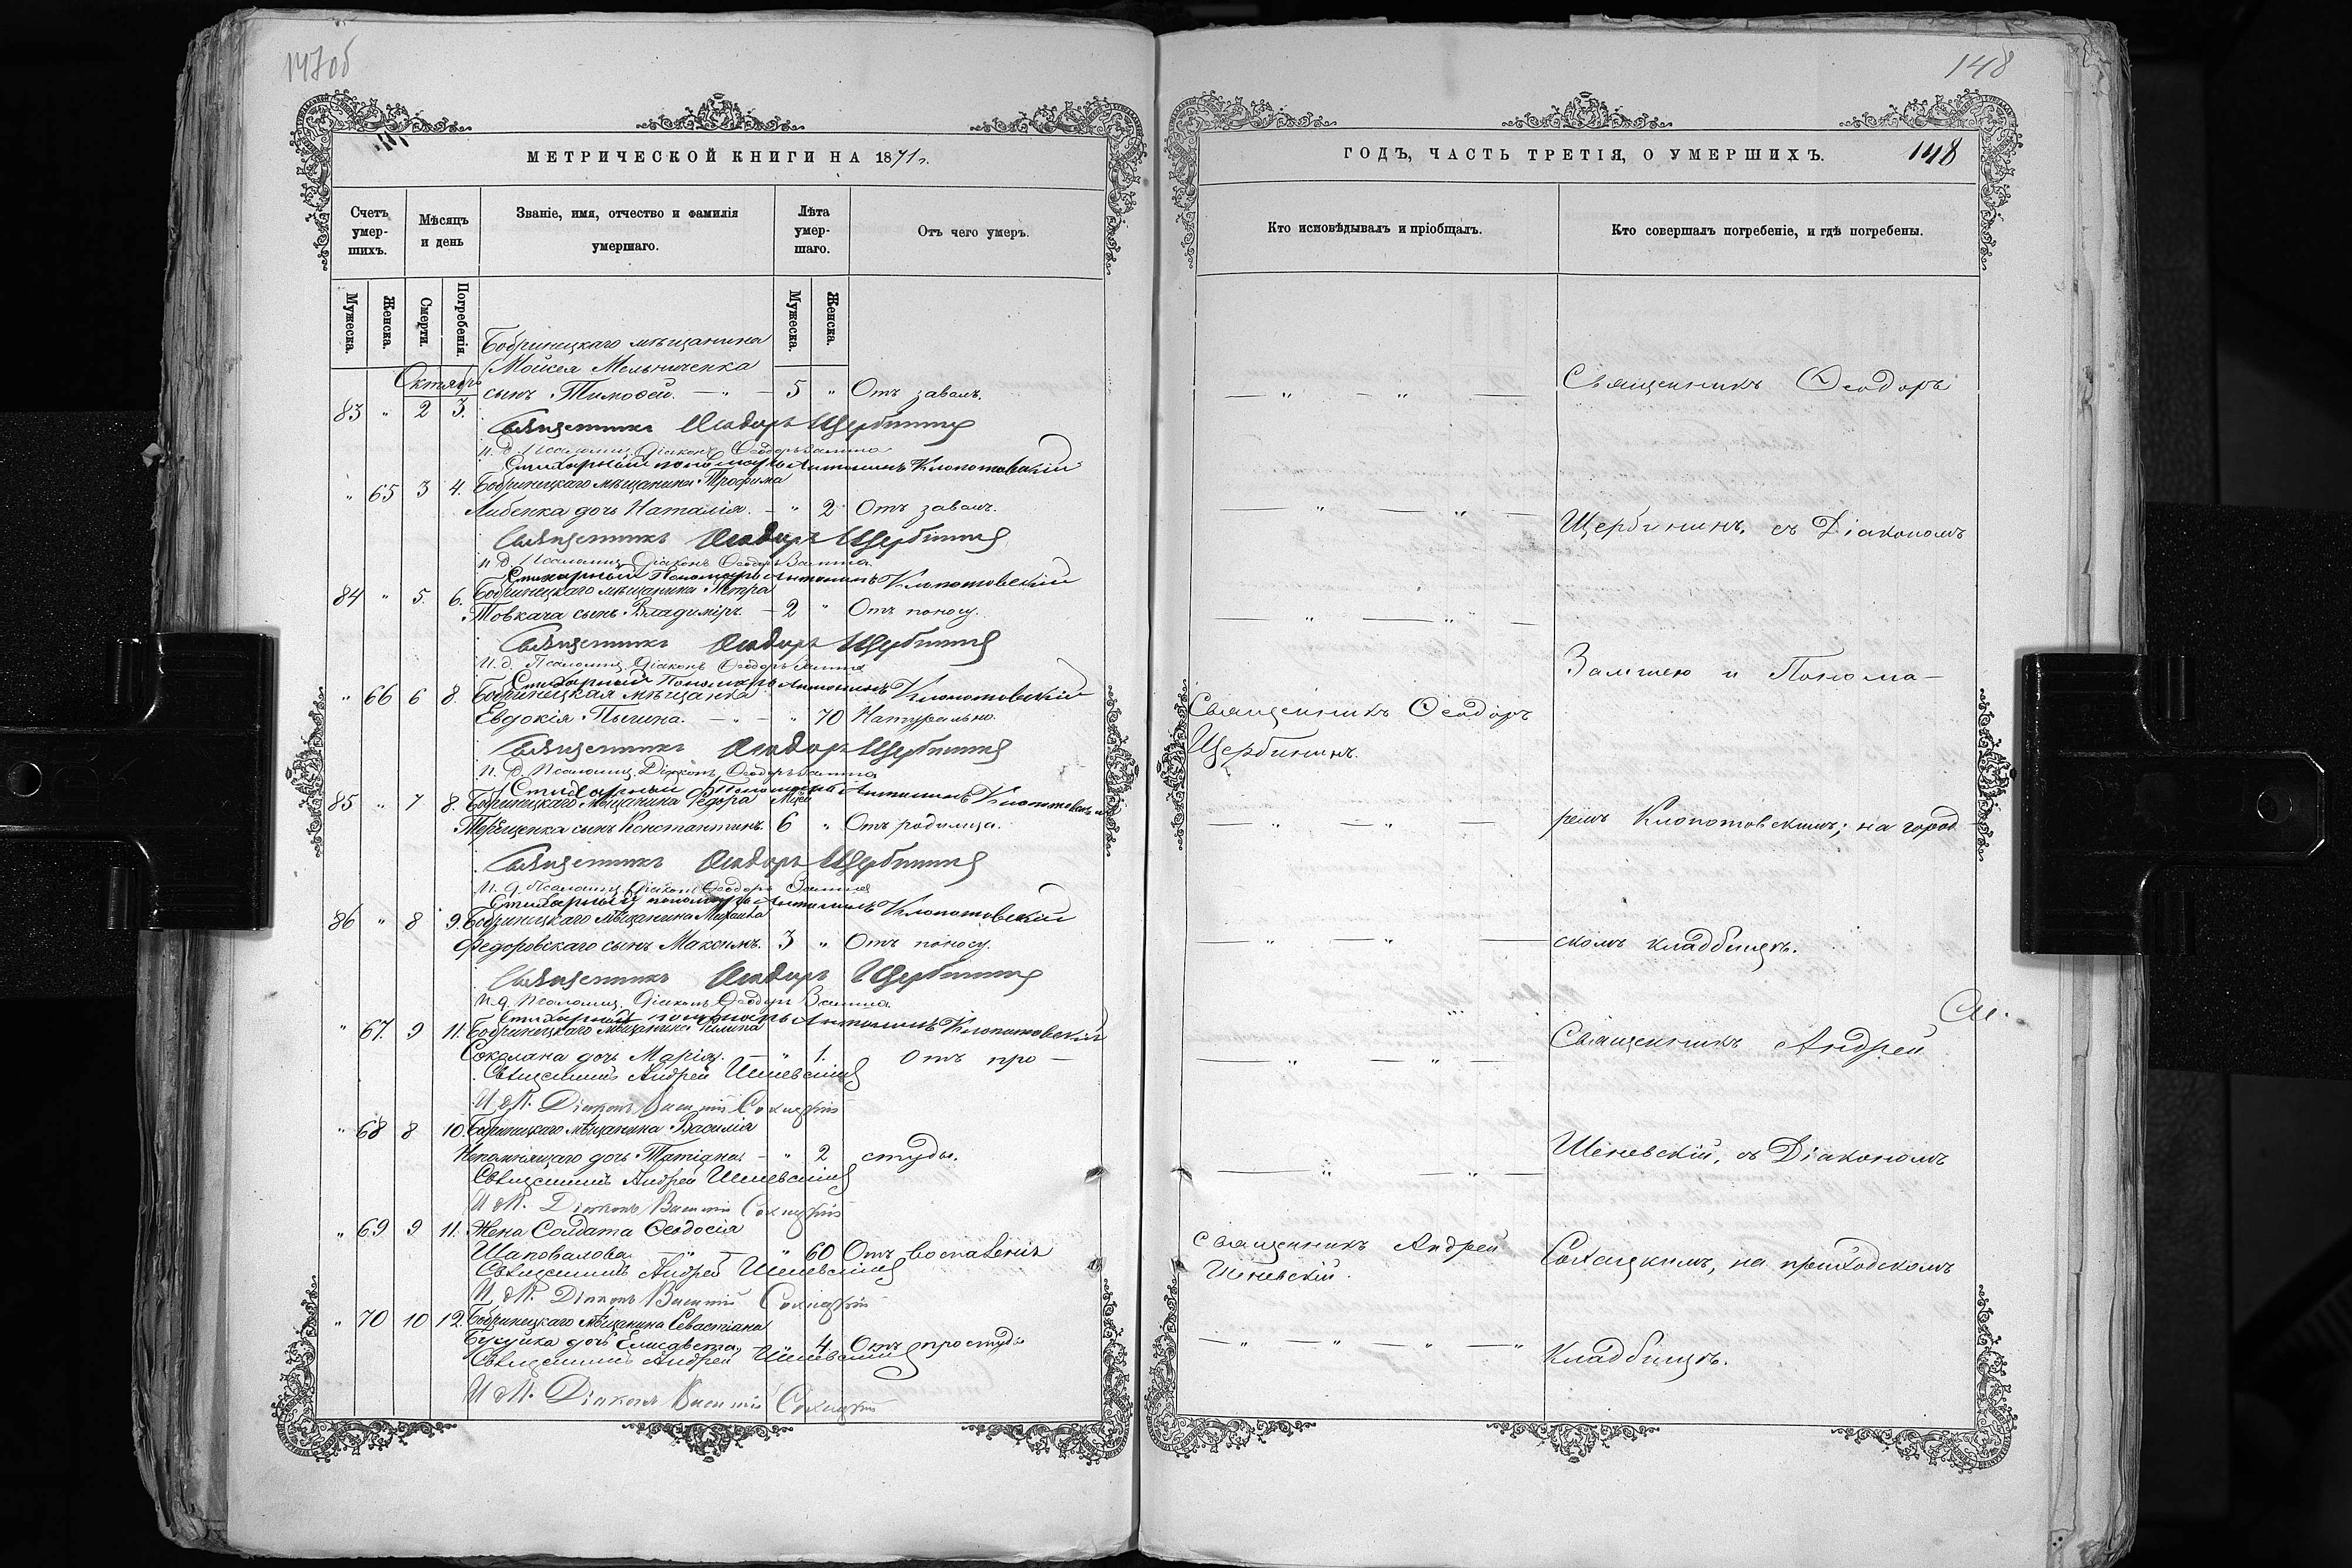 147об
МЕТРИЧЕСКОЙ КНИГИ НА 1871 г.
Счетъ умер-шихъ.
Мѣсяцъ и день
Званіе, имя, отчество и фамилія умершаго.
Лѣта умер-шаго.
Отъ чего умеръ.
Мужеска.
Женска.
Смерти.
Погребенія.
Мужеска.
Женска.
Октябрь
Бобринецкаго мѣщанина
Мойсея Мельниченка
83 " 2 3. сынъ Тимофей. — " — 5 " Отъ завалъ.
Священникъ Ѳеодоръ Щербининъ
И. д. Псаломщ. Діаконъ Ѳеодоръ
Стихарный пономарь Антонинъ Клопотовскій
" 65 3 4. Бобринецкаго мѣщанина Трофима
дочь Наталія. — " 2 Отъ завалъ.
Священникъ Ѳеодоръ Щербининъ
И. д. Псаломщ. Діаконъ Ѳеодоръ
Стихарный Пономарь Антонинъ Клопотовскій
84 " 5. 6. Бобринецкаго мѣщанина Петра
Товкача сынъ Владиміръ. — 2 " Отъ поносу.
Священникъ Ѳеодоръ Щербининъ
И. д. Псаломщ. Діаконъ Ѳеодоръ
Стихарный Пономарь Антонинъ Клопотовскій
" 66 6 8. Бобринецкая мѣщанка
Евдокія — " — " 70 Натурально.
Священникъ Ѳеодоръ Щербининъ
И. д. Псаломщ. Діаконъ Ѳеодоръ
Стихарный Пономарь Антонинъ Клопотовскій
85 " 7 8. Бобринецкаго мѣщанина Федора
Терещенка сынъ Константинъ. 6 " Отъ родимца.
Священникъ Ѳеодоръ Щербининъ
И. д. Псаломщ. Діаконъ Ѳеодоръ
Стихарный пономарь Антонинъ Клопотовскій
86 " 8 9. Бобринецкаго мѣщанина Михаила
Федоровскаго сынъ Максимъ. 3 " Отъ поносу.
Священникъ Ѳеодоръ Щербининъ
И. д. Псаломщ. Діаконъ Ѳеодоръ
Стихарный пономарь Антонинъ Клопотовскій
" 67. 9 11. Бобринецкаго мѣщанина Филипа
дочь Марія. — " 1. Отъ про —
Священникъ Андрей Шеневскій
И. д. П. Діаконъ
" 68 8 10. Бобринецкаго мѣщанина Василія
Непомнящаго дочь Татіяна — " 2 студы.
Священникъ Андрей Шеневскій
И. д. П. Діаконъ
" 69 9 11. Жена Солдата Ѳеодосія
Шаповалова — " — " 60 Отъ воспаленія
Священникъ Андрей Шеневскій
И. д. П. Діаконъ
" 70 10 12. Бобринецкаго мѣщанина Севастіана
дочь Елисавета — 4 Отъ простуды
Священникъ Андрей Шеневскій
И. д. П. Діаконъ
148
ГОДЪ, ЧАСТЬ ТРЕТІЯ, О УМЕРШИХЪ. 148
Кто исповѣдывалъ и пріобщалъ.
Кто совершалъ погребеніе, и гдѣ погребены.
— " — " — Священникъ Ѳеодоръ
— " — " — Щербининъ, съ Діакономъ
— " — " — и Понома-
Священникъ Ѳеодоръ
Щербининъ.
— " — " — ремъ Клопотовскимъ; на город
— " — " — скомъ кладбищѣ.
— " — " — Священникъ Андрей
— " — " — Шеневскій, съ Діакономъ
Священникъ Андрей
Шеневскій.
на приходскомъ
— " — " — " — " кладбищѣ.